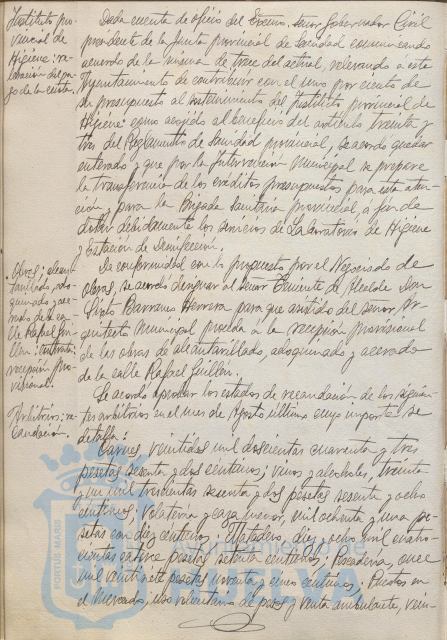 Instituto pro-
vincial de
Higiene: re-
Dada cuenta de oficio del Excmo. señor Gobernador Civil
presidente de la Junta provincial de Sanidad comunicando
acuerdo de la misma de trece del actual, relevando a este
Ayuntamiento de contribuir con el uno por ciento de
su presupuesto al sostenimiento del Instituto provincial de
Higiene: como acogido al beneficio del artículo treinta y
tres del Reglamento de Sanidad provincial, se acordó quedar
enterado y que por la Intervención Municipal se prepare
la transferencia de los créditos presupuestos para esta aten-
ción y para la Brigada Sanitaria provincial, a fin de
dotar debidamente los servicios de Laboratorios de Higiene
y Estación de Desinfección.
Obras: alcan-
tarillado, ado-
quinado y ace-
rado de la ca-
lle Rafael Gui-
llén:
recepción pro-
visional.
De conformidad con lo propuesto por el Negociado de
Obras, se acordó designar al señor Teniente de Alcalde Don
Sixto Barranco Herrera para que asistido del señor Ar-
quitecto Municipal proceda a la recepción provisional
de las obras de alcantarillado, adoquinado y acerado
de la calle Rafael Guillén.
Arbitrios: re-
caudación.
Se acordó aprobar los estados de recaudación de los siguien-
tes arbitrios en el mes de Agosto último cuyo importe se
detalla:
Carnes, veintidós mil doscientas cuarenta y tres
pesetas sesenta y dos céntimos; vinos y alcoholes, treinta
y un mil trescientas sesenta y dos pesetas sesenta y ocho
céntimos; volatería y caza menor, mil ochenta y una pe-
setas con diez céntimos; Matadero, diez y ocho mil cuatro-
cientas catorce pesetas setenta céntimos; Pescadería, once
mil veintisiete pesetas noventa y cinco céntimos; Puestos en
el Mercado, uso voluntario de pesas y venta ambulante, vein-
PORTUS MARIS
Ayuntamiento de
HUELVA